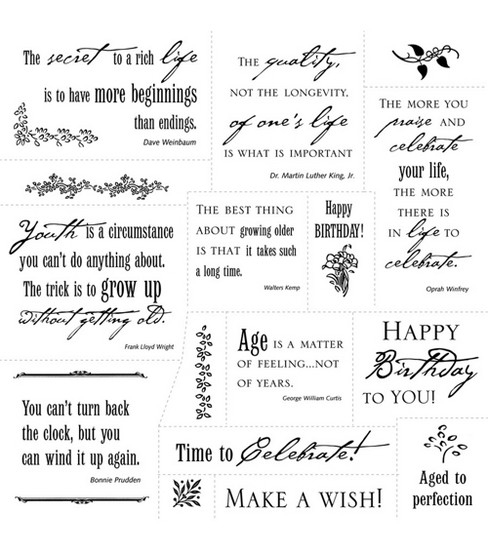 The secret to a rich life
is to have more beginnings
than endings.
Dave Weinbaum
The quality,
NOT THE LONGEVITY,
of one's life
IS WHAT IS IMPORTANT
Dr. Martin Luther King, Jr.
THE MORE YOU
praise AND
celebrate
your life,
THE MORE
THERE IS
IN life TO
celebrate.
Oprah Winfrey
Youth is a circumstance
you can't do anything about.
The trick is to grow up
without getting old.
Frank Lloyd Wright
THE BEST THING
ABOUT growing older
IS THAT it takes such
a long time.
Walters Kemp
Happy
BIRTHDAY!
Age IS A MATTER
OF FEELING...NOT
OF YEARS.
George William Curtis
HAPPY
Birthday
TO YOU!
You can't turn back
the clock, but you
can wind it up again.
Bonnie Prudden
Time to Celebrate!
MAKE A WISH!
Aged to
perfection